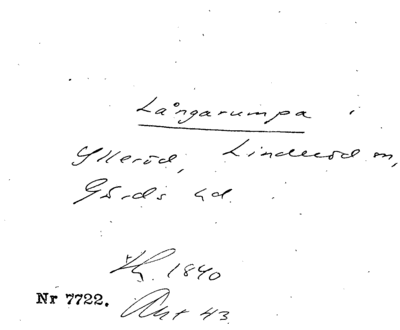 Långarumpa i
Ylleröd, Linderöd sn,
Gärds hd.
1840
Nr 7722. Akt 43